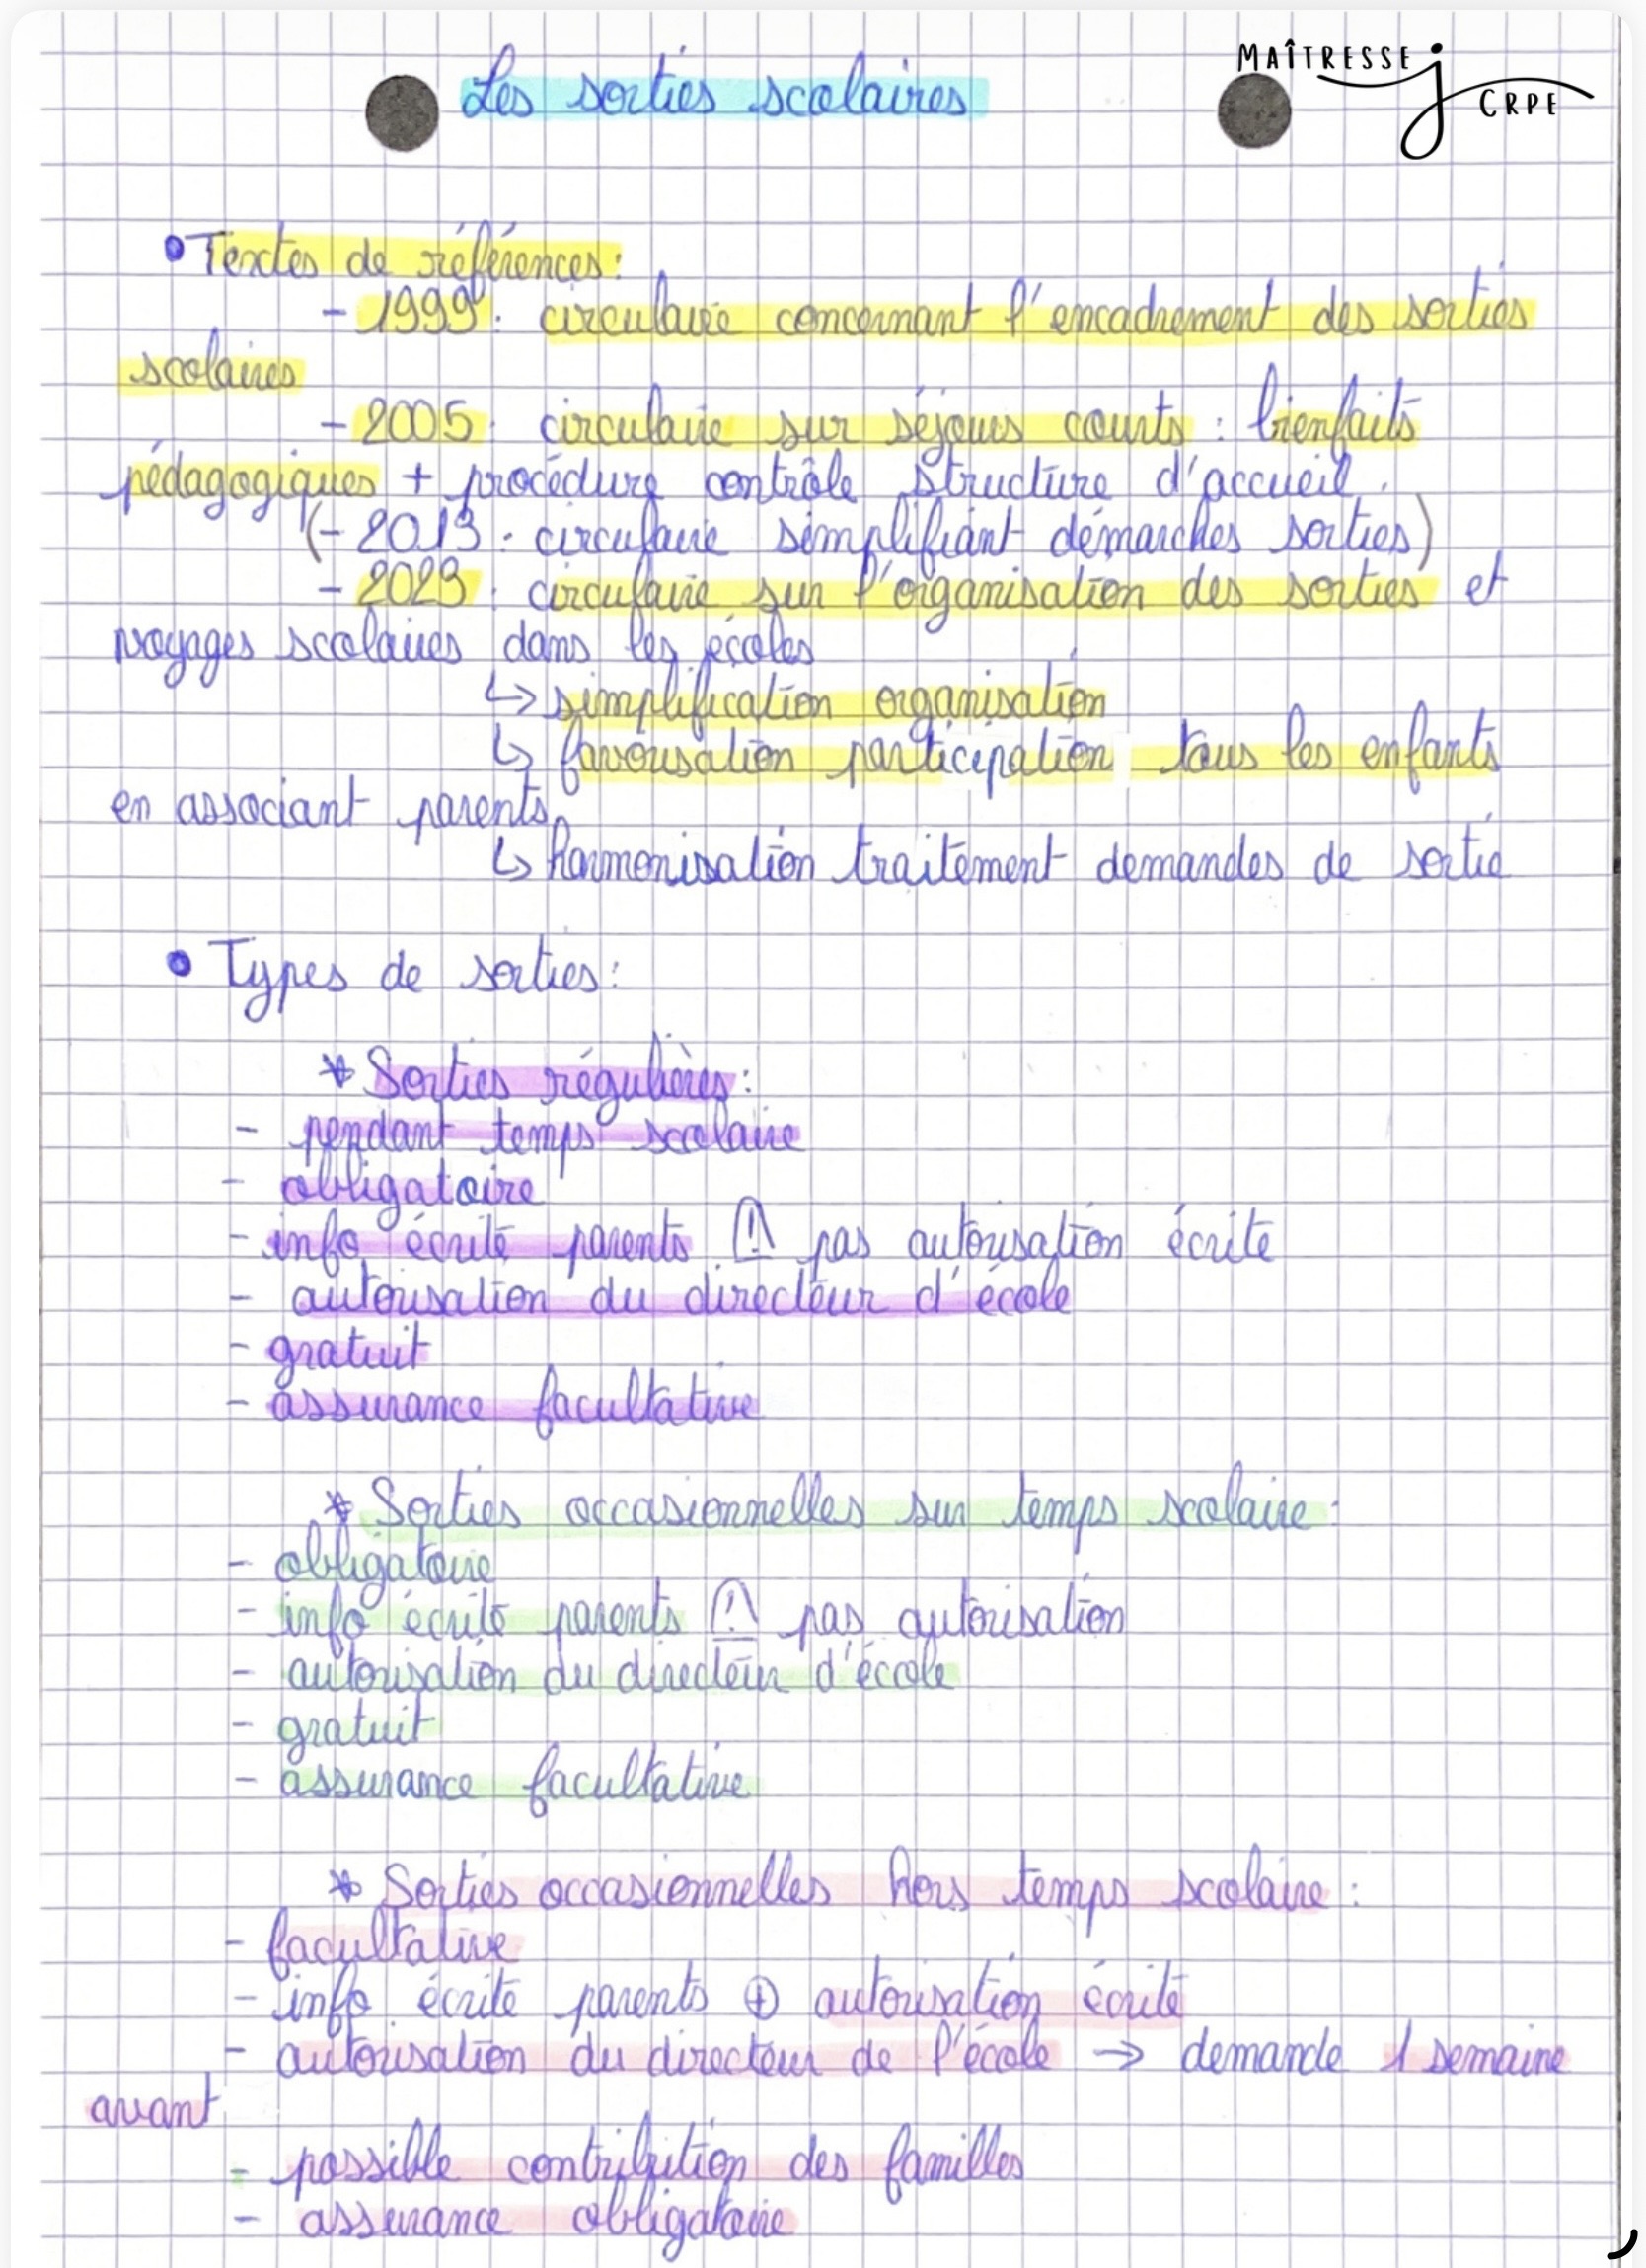 Les sorties scolaires
MAÎTRESSE J
CRPE
• Textes de références :
- 1999 : circulaire concernant l'encadrement des sorties
scolaires
- 2005 : circulaire sur séjours courts : bienfaits
pédagogiques + procédure contrôle structure d'accueil.
(- 2013 : circulaire simplifiant démarches sorties)
- 2023 : circulaire sur l'organisation des sorties et
voyages scolaires dans les écoles
↳ simplification organisation
↳ favorisation participation tous les enfants
en associant parents
↳ harmonisation traitement demandes de sortie
• Types de sorties :
* Sorties régulières :
- pendant temps scolaire
- obligatoire
- info écrite parents ⚠ pas autorisation écrite
- autorisation du directeur d'école
- gratuit
- assurance facultative
* Sorties occasionnelles sur temps scolaire :
- obligatoire
- info écrite parents ⚠ pas autorisation
- autorisation du directeur d'école
- gratuit
- assurance facultative
* Sorties occasionnelles hors temps scolaire :
- facultative
- info écrite parents ⊕ autorisation écrite
- autorisation du directeur de l'école → demande 1 semaine
avant
- possible contribution des familles
- assurance obligatoire